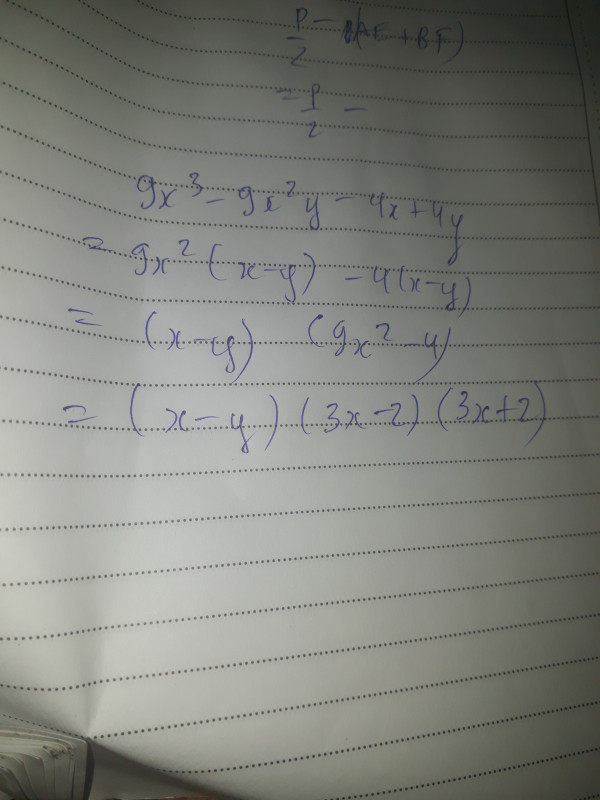 P/2 - (AE + BF)
= P/2 -
9x³ - 9x²y - 4x + 4y
= 9x² (x-y) - 4(x-y)
= (x-y) (9x² - 4)
= (x-y) (3x-2) (3x+2)